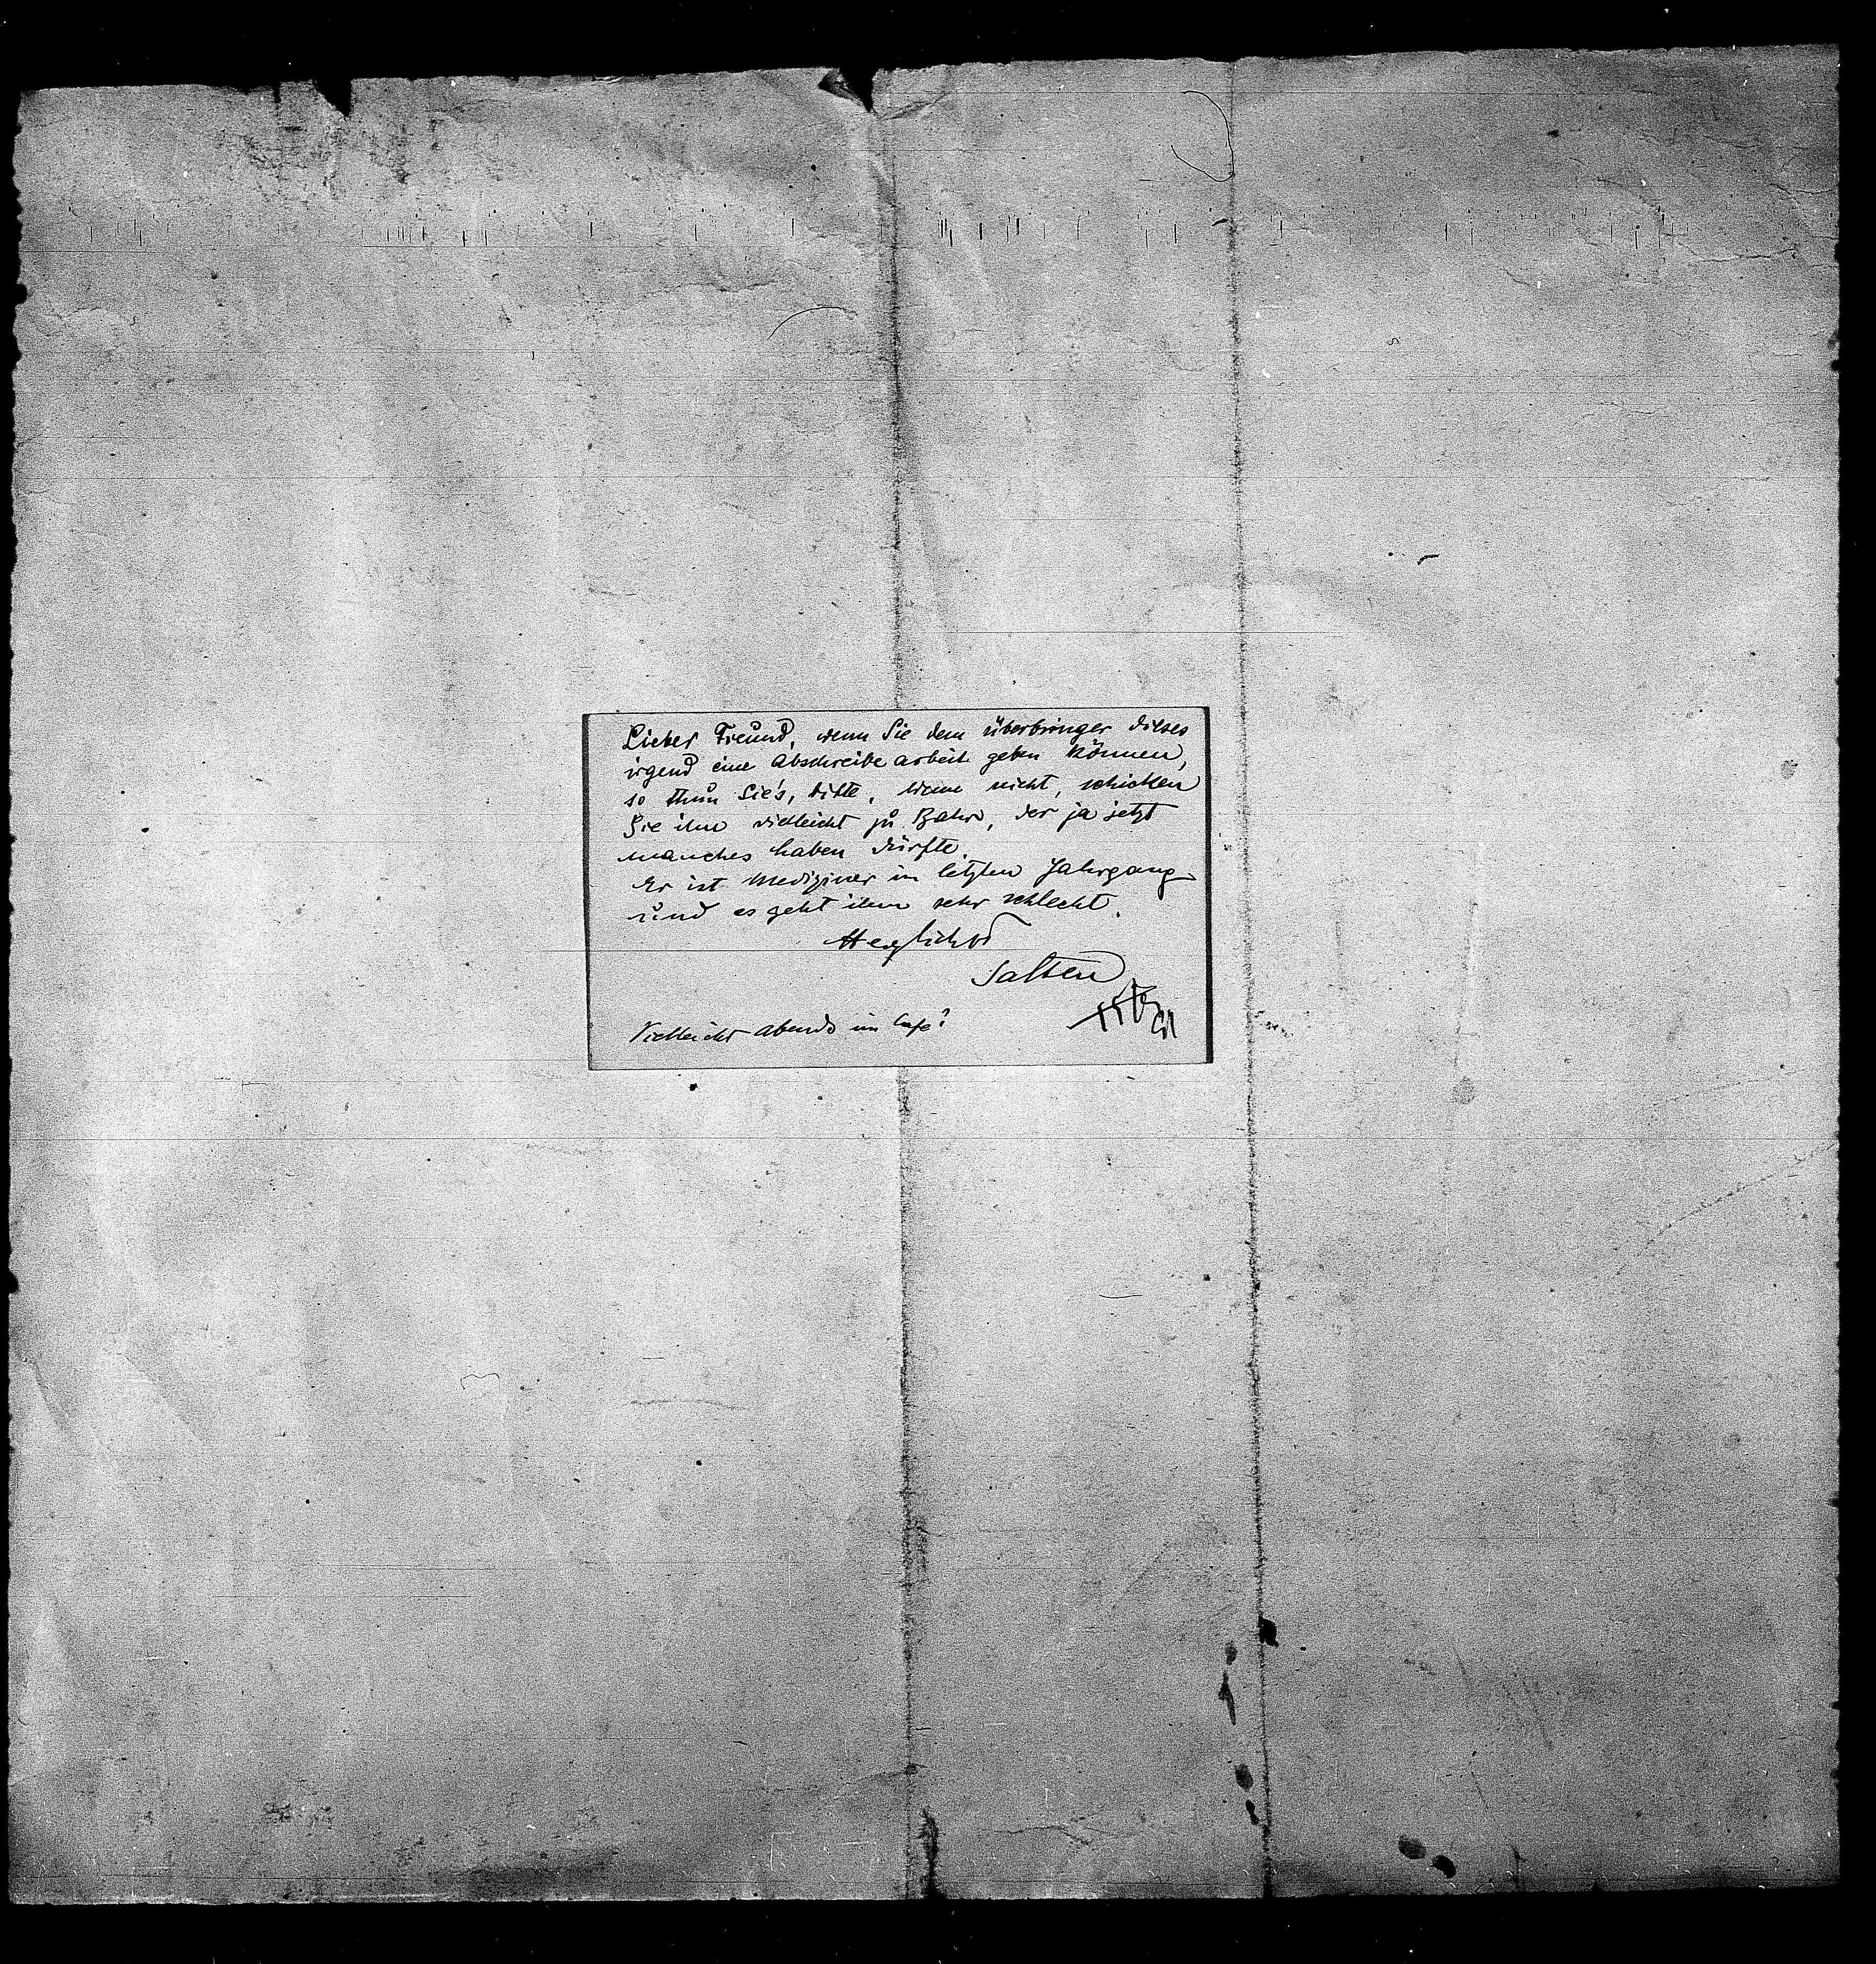 Lieber Freund, wenn Sie dem Überbringer dieses
irgend eine Abschreibearbeit geben können,
so thun Sie's, bitte, wenn nicht, schicken
Sie ihn vielleicht zu Bahr, der ja jetzt
manches haben dürfte.
Er ist Mediziner im letzten Jahrgang
und es geht ihm sehr schlecht.
Herzlichst
Salten
Vielleicht abends im Café?